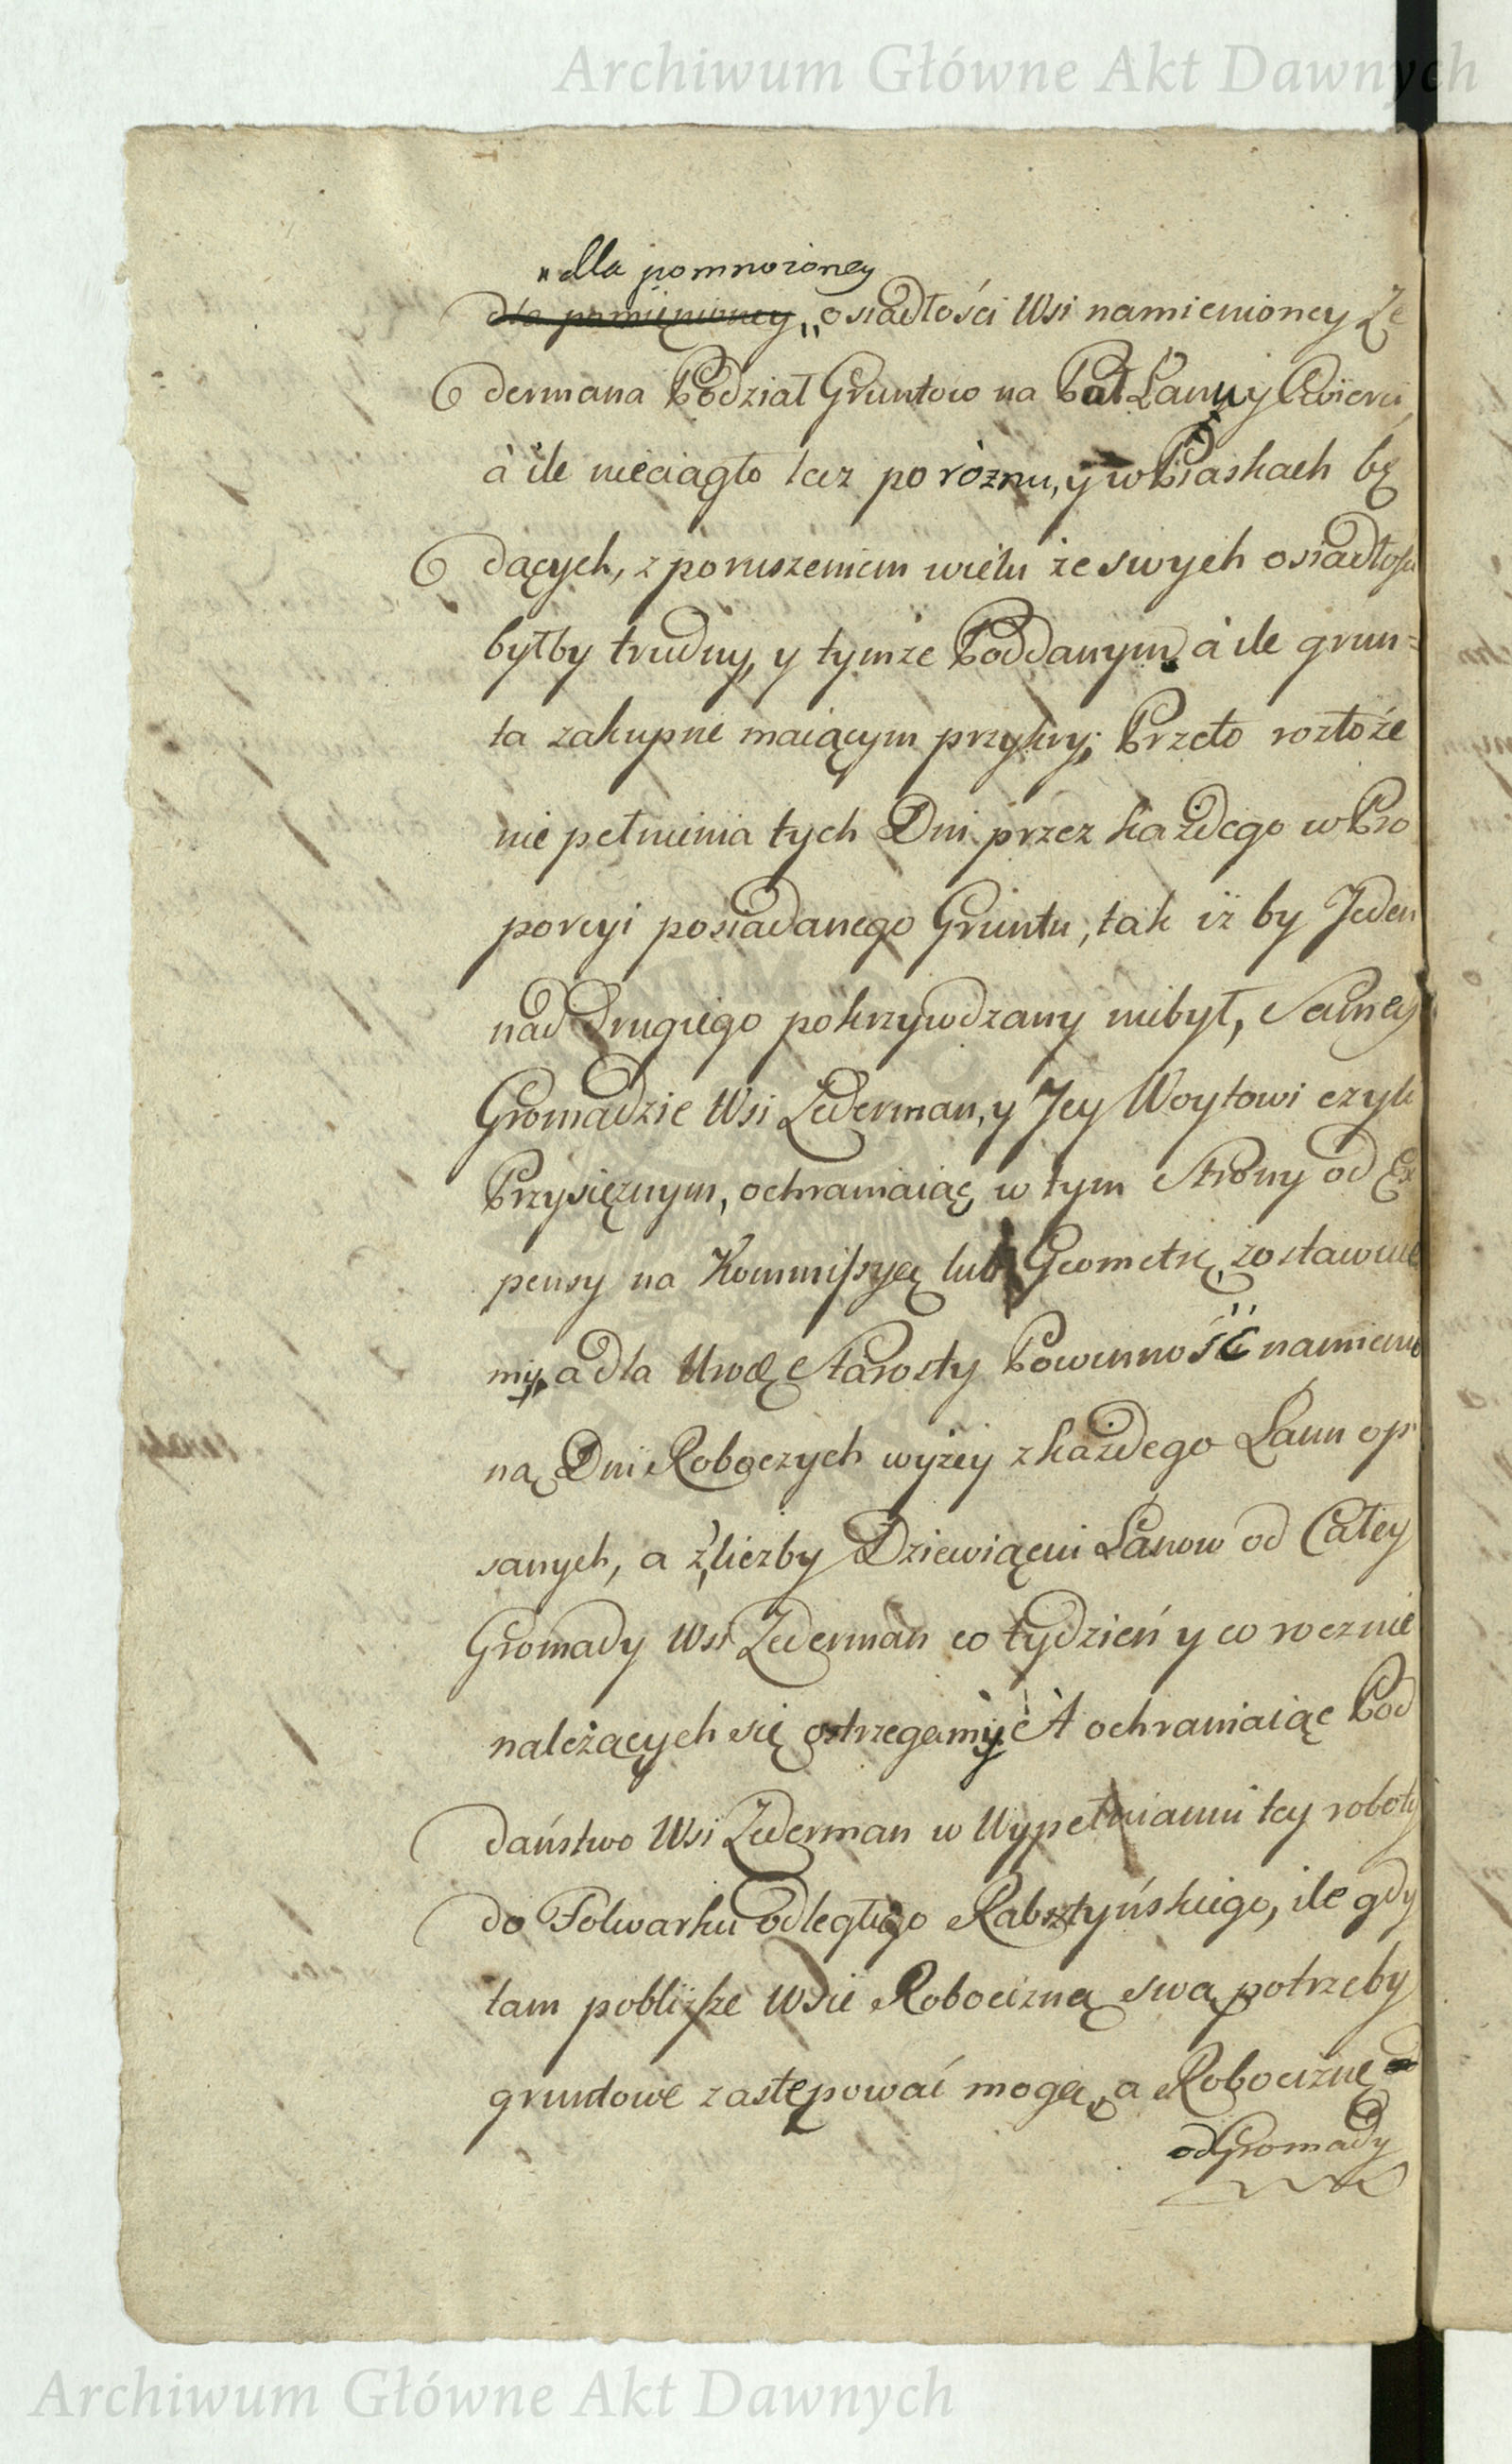 Archiwum Główne Akt Dawnych
"dla pomnożoney
dla pomienioney „ osiadłości Wsi namienioney Ze
dermana Podział Gruntow na Puł Lanny y Cwierci,
à ile nieciągło lecz po rożnu, y w Piaskach bę
dących, z poruszeniem wielu ze swych osiadłości
byłby trudny, y tymże Poddanym, à ile grun=
ta zakupne maiącym przykry; Przeto rozłoże
nie pełnienia tych Dni przez każdego w Pro
porcyi posiadanego Gruntu, tak iż by Jeden
nad drugiego pokrzywdzany niebył, Samey
Gromadzie Wsi Zederman, y Jey Woytowi czyli
Przysiężnym, ochraniaiąc w tym Strony od Ex
pensy na Kommissyą lub Geometrę, zostawuie
my, a dla Urodź Starosty Powinność namienio
ną Dni Roboczych wyżey z każdego Lanu opi
sanych, a z liczby Dziewiąciu Lanow od Całey
Gromady Wsi Zederman co tydzień y co rocznie
należących się ostrzegamy. A ochraniaiąc Pod
daństwo Wsi Zederman w Wypełnianiu tey roboty
do Folwarku odległego Rabsztyńskiego, ile gdy
tam pobliższe Wsie Robocizną swą potrzeby
gruntowe zastępować mogą, a Robociznę
od Gromady
Archiwum Główne Akt Dawnych